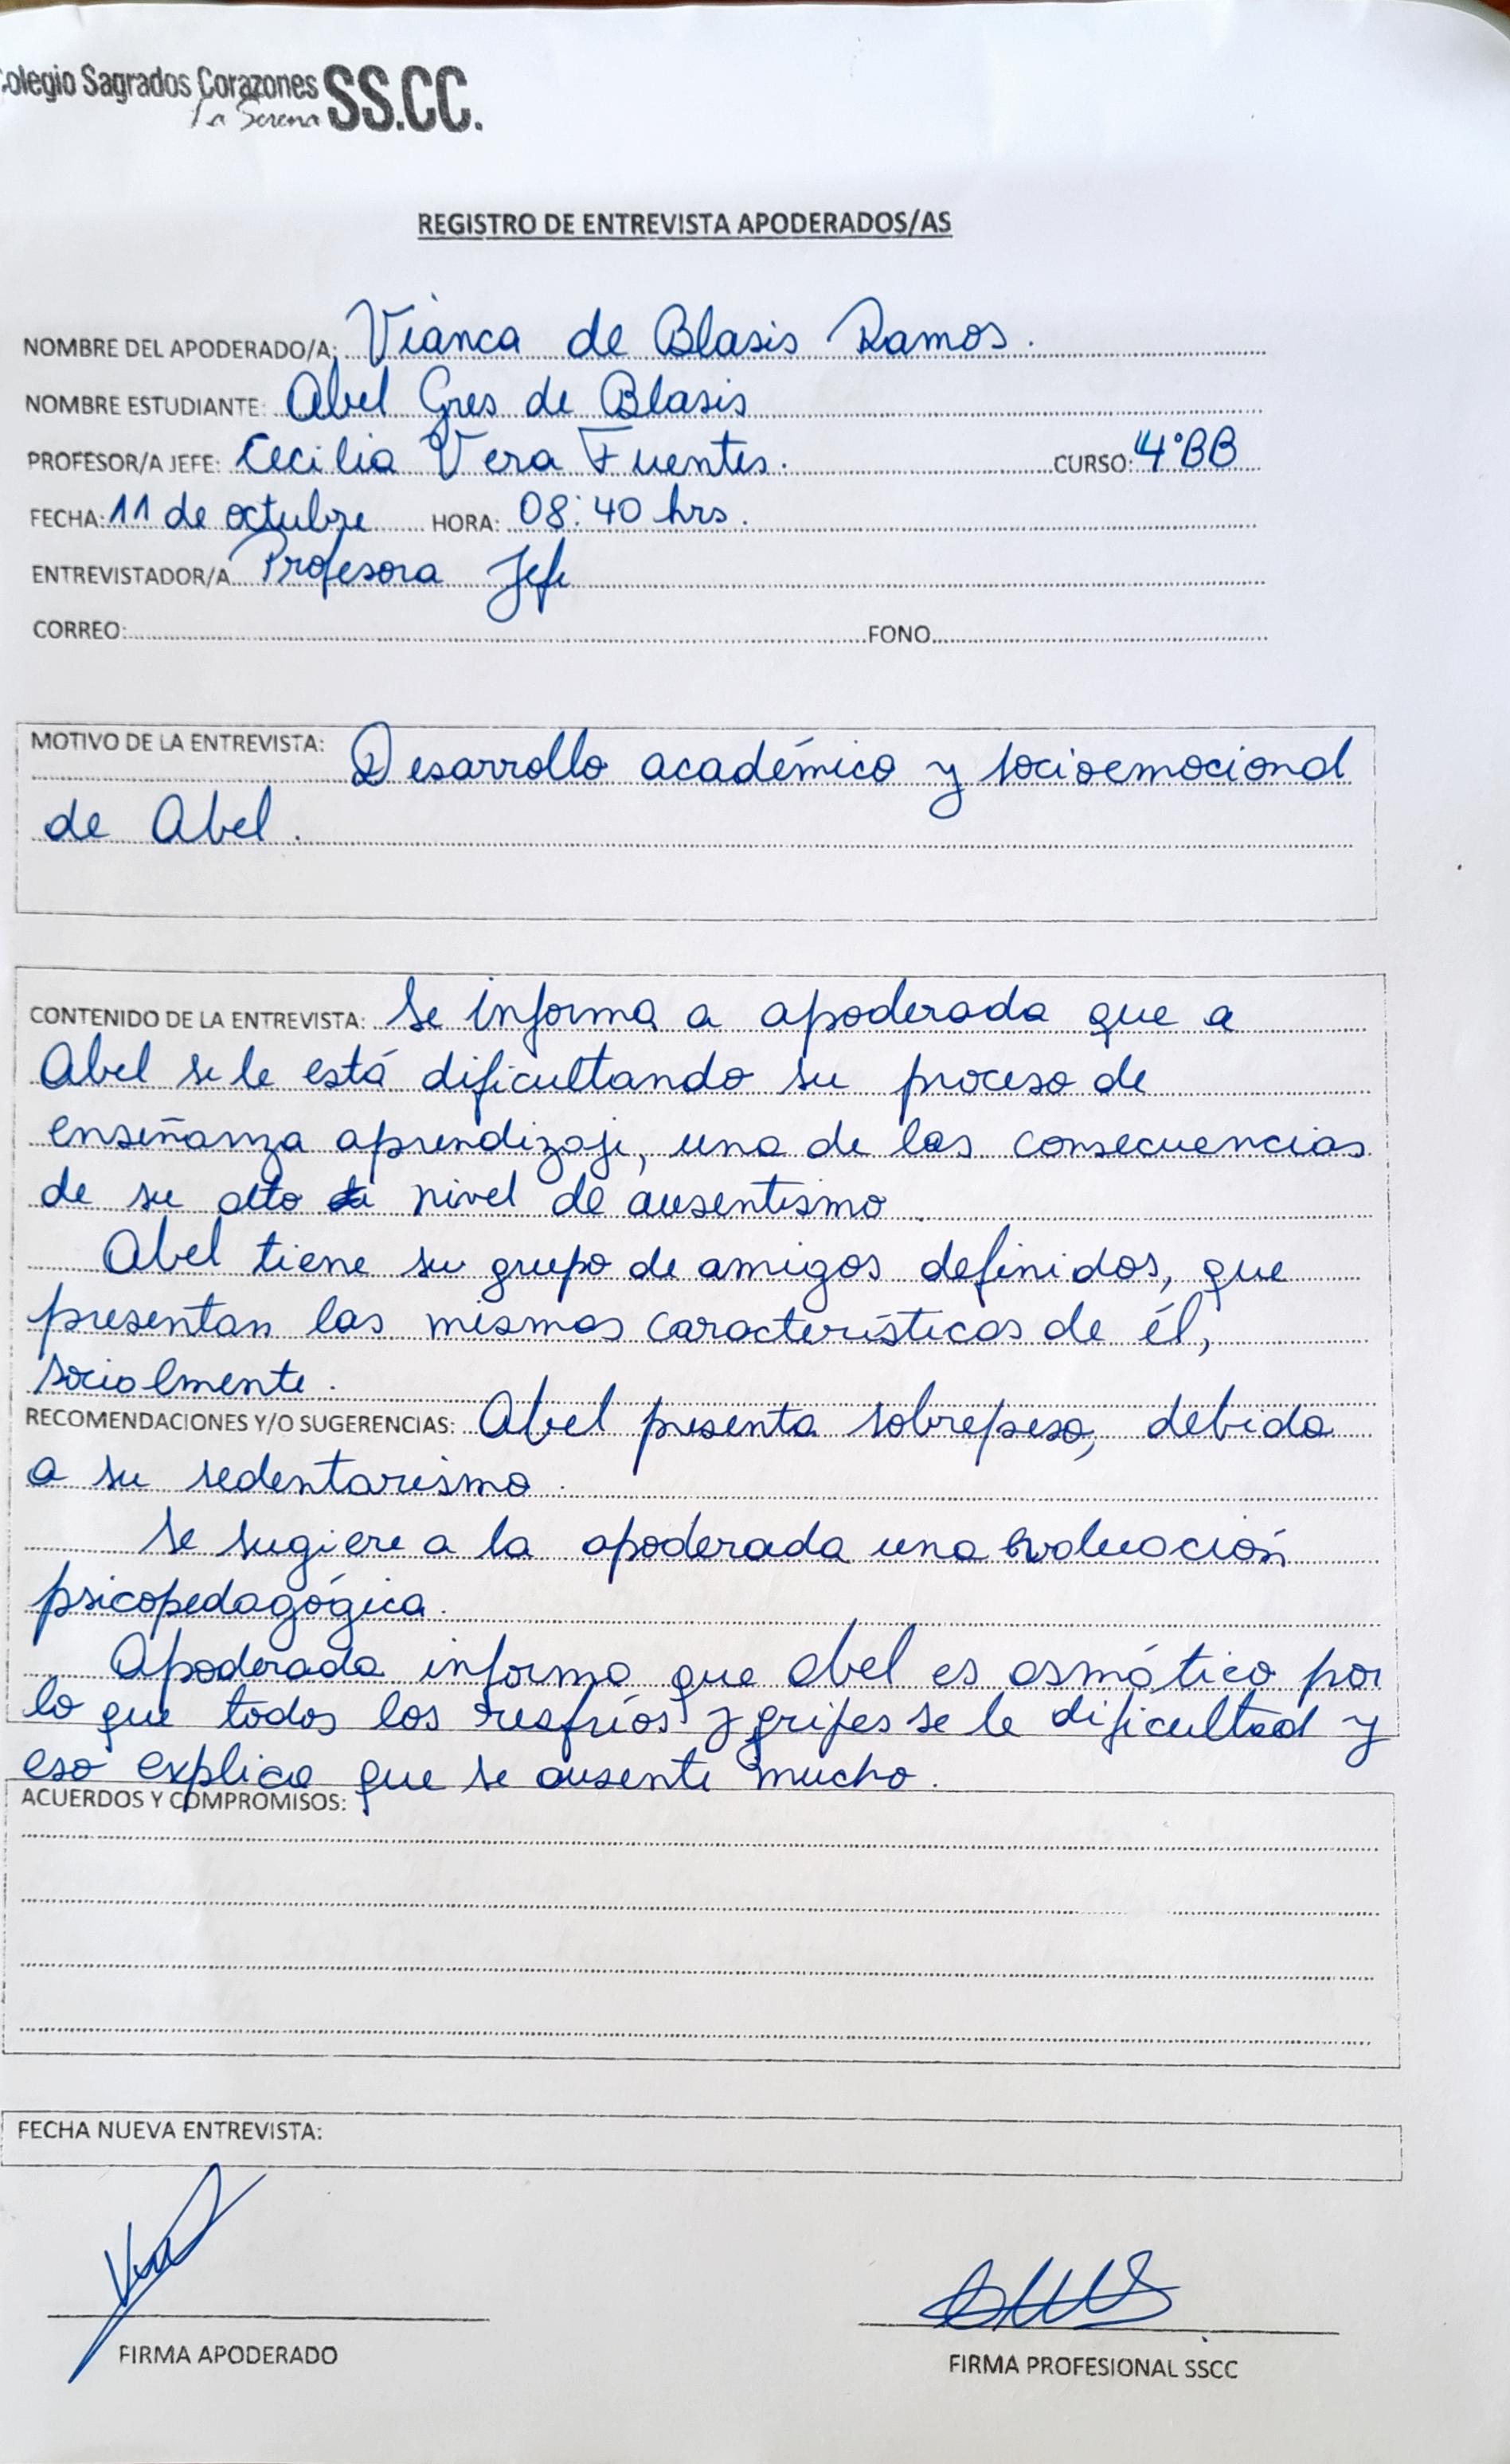 Colegio Sagrados Corazones SS.CC.
La Serena
REGISTRO DE ENTREVISTA APODERADOS/AS
NOMBRE DEL APODERADO/A: Vianca de Blasis Ramos.
NOMBRE ESTUDIANTE: Abel Gres de Blasis
PROFESOR/A JEFE: Cecilia Vera Fuentes. CURSO: 4°BB
FECHA: 11 de octubre HORA: 08:40 hrs.
ENTREVISTADOR/A Profesora Jefe
CORREO: FONO
MOTIVO DE LA ENTREVISTA: Desarrollo académico y socioemocional
de Abel.
CONTENIDO DE LA ENTREVISTA: Se informa a apoderada que a
Abel se le está dificultando su proceso de
enseñanza aprendizaje, una de las consecuencias
de su alto nivel de ausentismo
Abel tiene su grupo de amigos definidos, que
presentan las mismas características de él,
socialmente.
RECOMENDACIONES Y/O SUGERENCIAS: Abel presenta sobrepeso, debido
a su sedentarismo.
Se sugiere a la apoderada una evaluación
psicopedagógica.
Apoderada informa que Abel es asmático por
lo que todos los resfríos y gripes se le dificultad y
eso explica que se ausente mucho.
ACUERDOS Y COMPROMISOS:
FECHA NUEVA ENTREVISTA:
FIRMA APODERADO
FIRMA PROFESIONAL SSCC